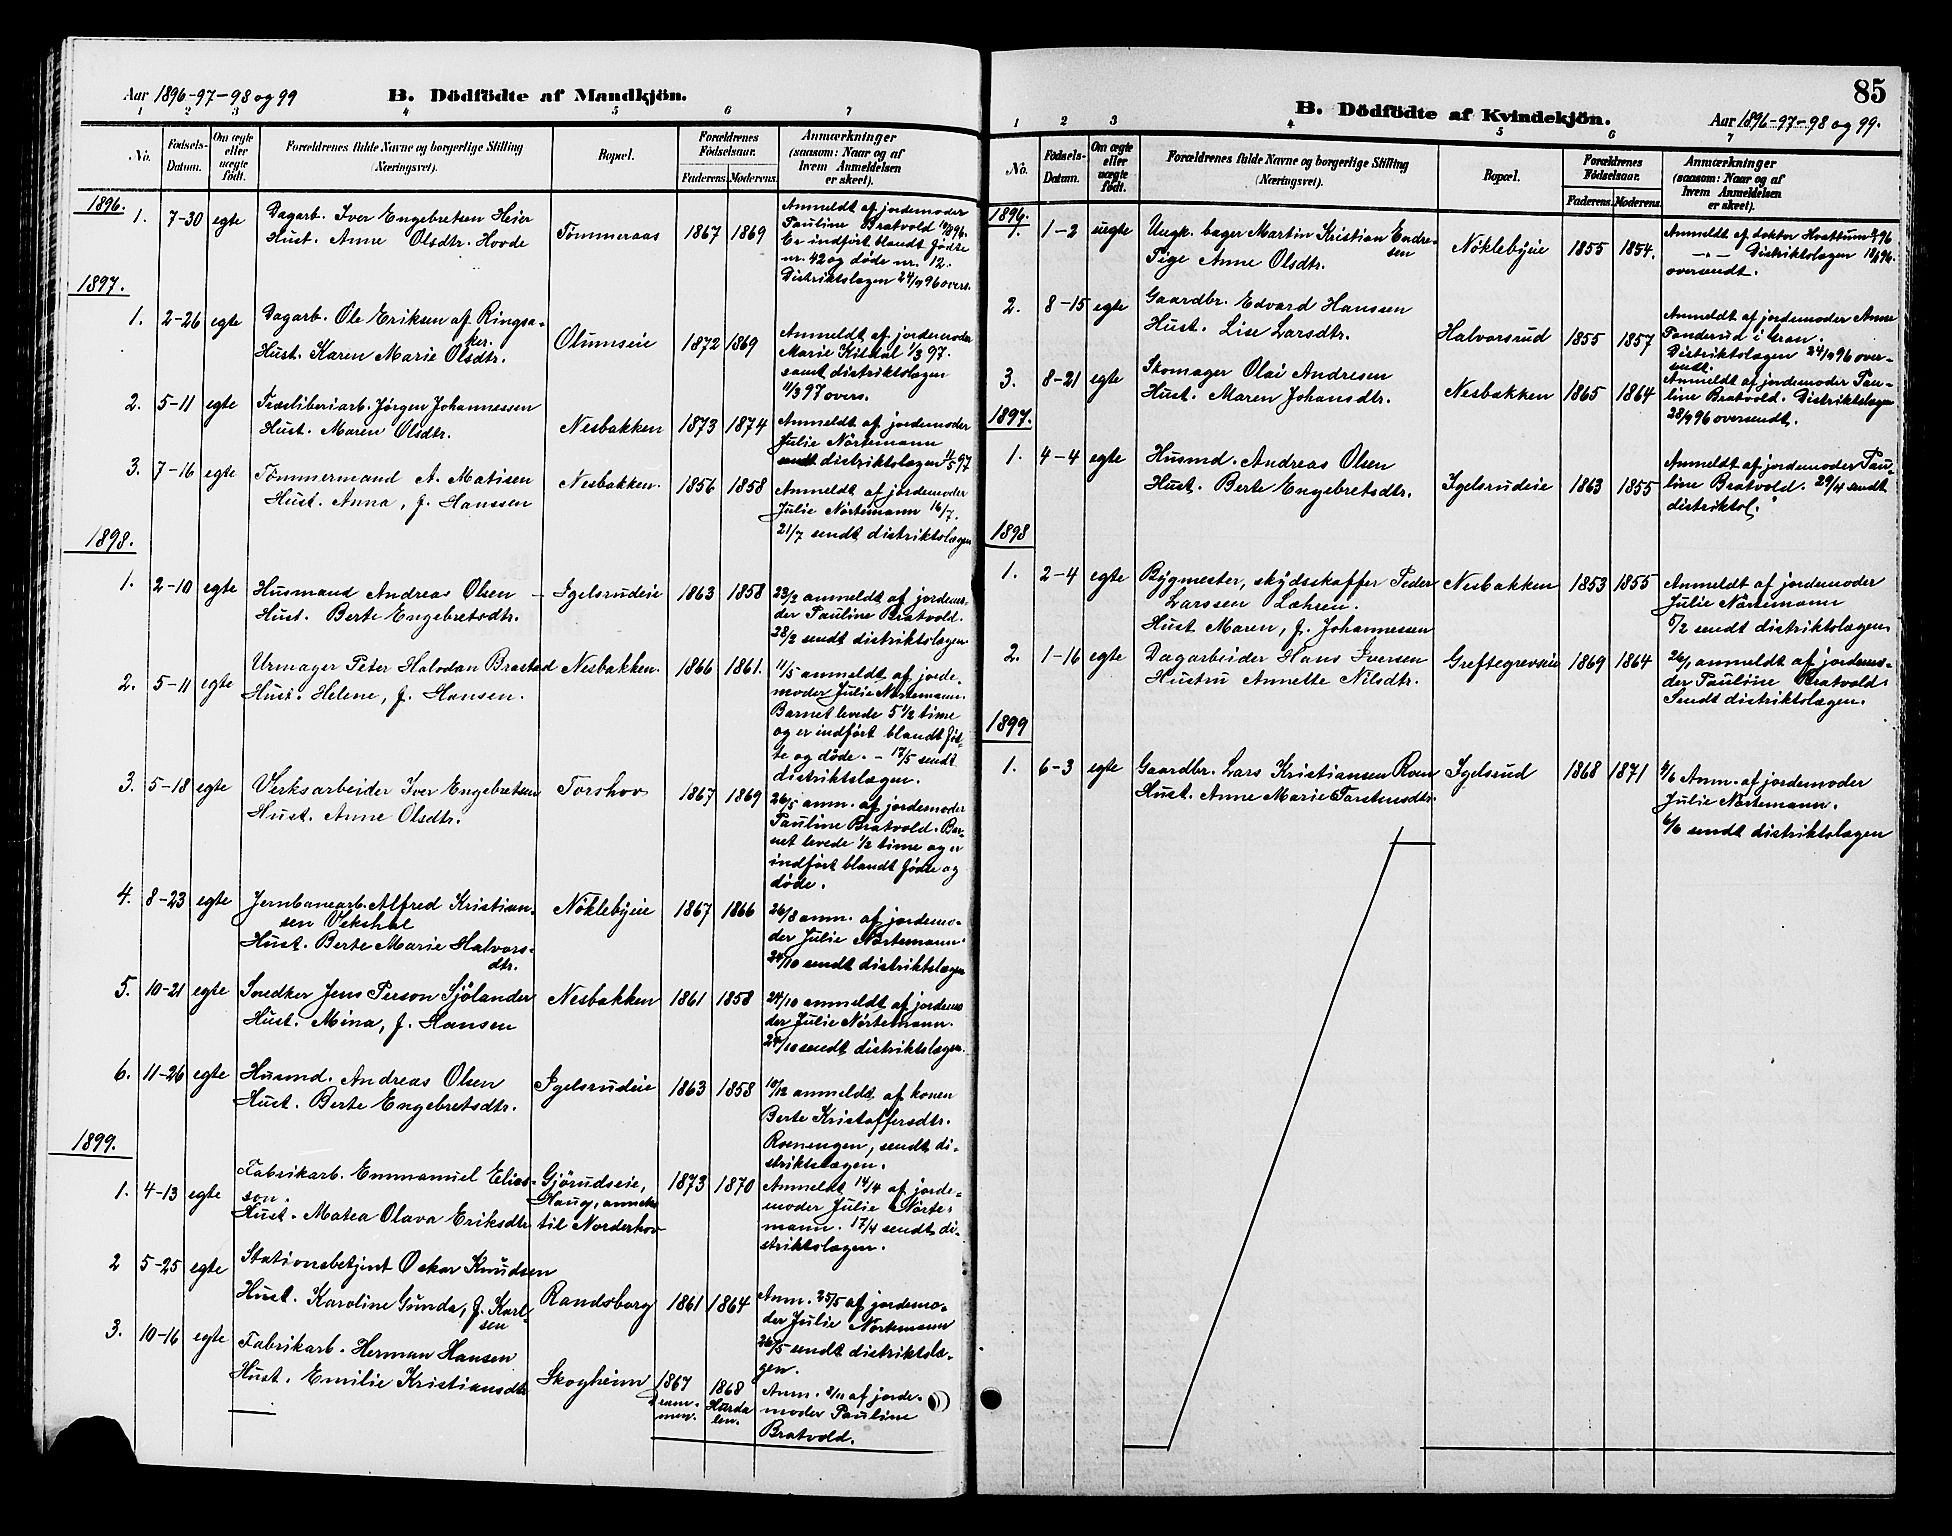 Aar 1896-97-98 og 99
B. Dödfödte af Mandkjön.
1 2 3 4 5 6 7
No.
Födsels-Datum.
Om ægte eller uægte födt.
Forældrenes fulde Navne og borgerlige Stilling (Næringsvei).
Bopæl.
Forældrenes Födselsaar.
Faderens. Moderens.
Anmærkninger (saasom: Naar og af hvem Anmeldelsen er skeet).
1896.
1. 7-30 egte Dagarb. Iver Engebretsen Heier
Hust. Anne Olsdtr. Hovde
Tömmeraas 1867 1869
Anmeldt af jordemoder
Pauline Bratvold
Er indfört blandt födte
nr. 42 og döde nr. 12.
Distriktslægen 24/9 96 overs.
1897.
1. 2-26 egte Dagarb. Ole Eriksen af Ringsa-
ker.
Hust. Karen Marie Olsdtr.
Olumseie 1872 1869
Anmeldt af jordemoder
Marie Kithal 1/3 97.
samt distriktslægen
11/3 97 overs.
2. 5-11 egte Træsliberiarb. Jörgen Johannessen
Hust. Maren Olsdtr.
Nesbakken 1873 1874
Anmeldt af jordemoder
Julie Nörtemann
sendt distriktslægen 11/5 97
3. 7-16 egte Tömmermand A. Matisen
Hust. Anna, f. Hanssen
Nesbakken. 1856 1858
Anmeldt af jordemoder
Julie Nörtemann 16/7.
21/7 sendt distriktslægen
1898.
1. 2-10 egte Husmand Andreas Olsen
Hust. Berte Engebretsdtr.
Igelsrudeie 1863 1858
23/2 anmeldt af jordemo-
der Pauline Bratvold.
28/2 sendt distriktslægen
2. 5-11 egte Urmager Peter Halvdan Brastad
Hust. Helene, f. Hansen.
Nesbakken. 1866 1861.
11/5 anmeldt af jorde-
moder Julie Nörtemann.
Barnet levede 5 1/2 time
og er indfört blandt föd-
te og döde. - 17/5 sendt
distriktslægen.
3. 5-18 egte Verksarbeider Iver Engebretsen
Hust. Anne Olsdtr.
Torshov 1867 1869
26/5 anm. af jordemoder
Pauline Bratvold. Bar-
net levede 1/2 time og er
indfört blandt födte og
döde.
4. 8-23 egte Jernbanearb. Alfred Kristian-
sen Vekshal
Hust. Berte Marie Halvors-
dtr.
Nöklebyeie 1867 1866
26/8 anm. af jordemo-
der Julie Nörtemann.
24/10 sendt distriktslægen
5. 10-21 egte Snedker Jens Person Sjölander
Hust. Mina, f. Hansen
Nesbakken 1861 1858
24/10 anmeldt af jordemo
der Julie Nörtemann.
24/10 sendt distriktslægen.
6. 11-26 egte Husmd. Andreas Olsen
Hust. Berte Engebretsdtr.
Igelsrudeie 1863 1858
10/12 anmeldt af konen
Berte Kristoffersdtr.
Roenengen, sendt di-
striktslægen.
1899.
1. 4-13 egte Fabrikarb. Emmanuel Elias-
son.
Hust. Matea Olava Eriksdtr
Gjörudseie,
Haug, anneks
til Norderhov
1873 1870
Anmeldt 14/4 af jorde-
moder Julie Nörte-
mann. 17/4 sendt di-
striktslægen.
2 5-25 egte Stationsbetjent Oskar Knudsen
Hust. Karoline Gunda, f. Karl-
sen
Randsborg 1861 1864
Anm. 25/5 af jordemo-
der Julie Nörtemann
26/5 sendt distriktslæ-
gen.
3. 10-16 egte Fabrikarb. Herman Hansen
Hust. Emilie Kristiansdtr
Skogheim 1867 Dram-
men. 1868 Hurda
len.
Anm. 2/11 af jorde-
moder Pauline
Bratvold.
85
B. Dödfödte af Kvindekjön.
Aar 1896-97-98 og 99.
1 2 3 4 5 6 7
No.
Födsels-Datum.
Om ægte eller uægte födt.
Forældrenes fulde Navne og borgerlige Stilling (Næringsvei).
Bopæl.
Forældrenes Födselsaar.
Faderens. Moderens.
Anmærkninger (saasom: Naar og af hvem Anmeldelsen er skeet).
1896.
1. 1-2 uegte Ungk. bager Martin Kristian Endre-
sen
Pige Anne Olsdtr.
Nöklebyeie 1855 1854.
Anmeldt af doktor Hvattum
-"- Distriktslægen
oversendt.
2. 8-15 egte Gaardbr. Edvard Hanssen
Hust. Lise Larsdtr.
Halvorsrud 1855 1857
Anmeldt af jordemoder Anne
Tanderud i Gran.
Distriktslægen 24/9 96 over-
sendt.
3. 8-21 egte Skomager Olai Andresen
Hust. Maren Johansdtr.
Nesbakken 1865 1864
Anmeldt af jordemoder Pau-
line Bratvold. Distriktslægen
28/9 96 oversendt.
1897.
1. 4-4 egte Husmd. Andreas Olsen
Hust. Berte Engebretsdtr.
Igelsrudeie 1863 1855
Anmeldt af jordemoder Pau-
line Bratvold. 29/4 sendt
distriktsl.
1898
1. 2-4 egte Bygmester, skydsskaffer Peder
Larssen Læhsen.
Hust Maren, f. Johannessen
Nesbakken 1853 1855
Anmeldt af jordemoder
Julie Nörtemann
5/2 sendt distriktslægen.
2. 1-16 egte Dagarbeider Hans Iversen
Hustru Annette Nilsdtr.
Greftegreveie 1869 1864
26/1 anmeldt af jordemo-
der Pauline Bratvold.
Sendt distriktslægen.
1899
1. 6-3 egte Gaardbr. Lars Kristiansen Roen
Hust. Anne Marie Torstensdtr.
Igelsrud 1868 1871
4/6 Anm. af jordemoder
Julie Nörtemann.
6/6 sendt distriktslægen